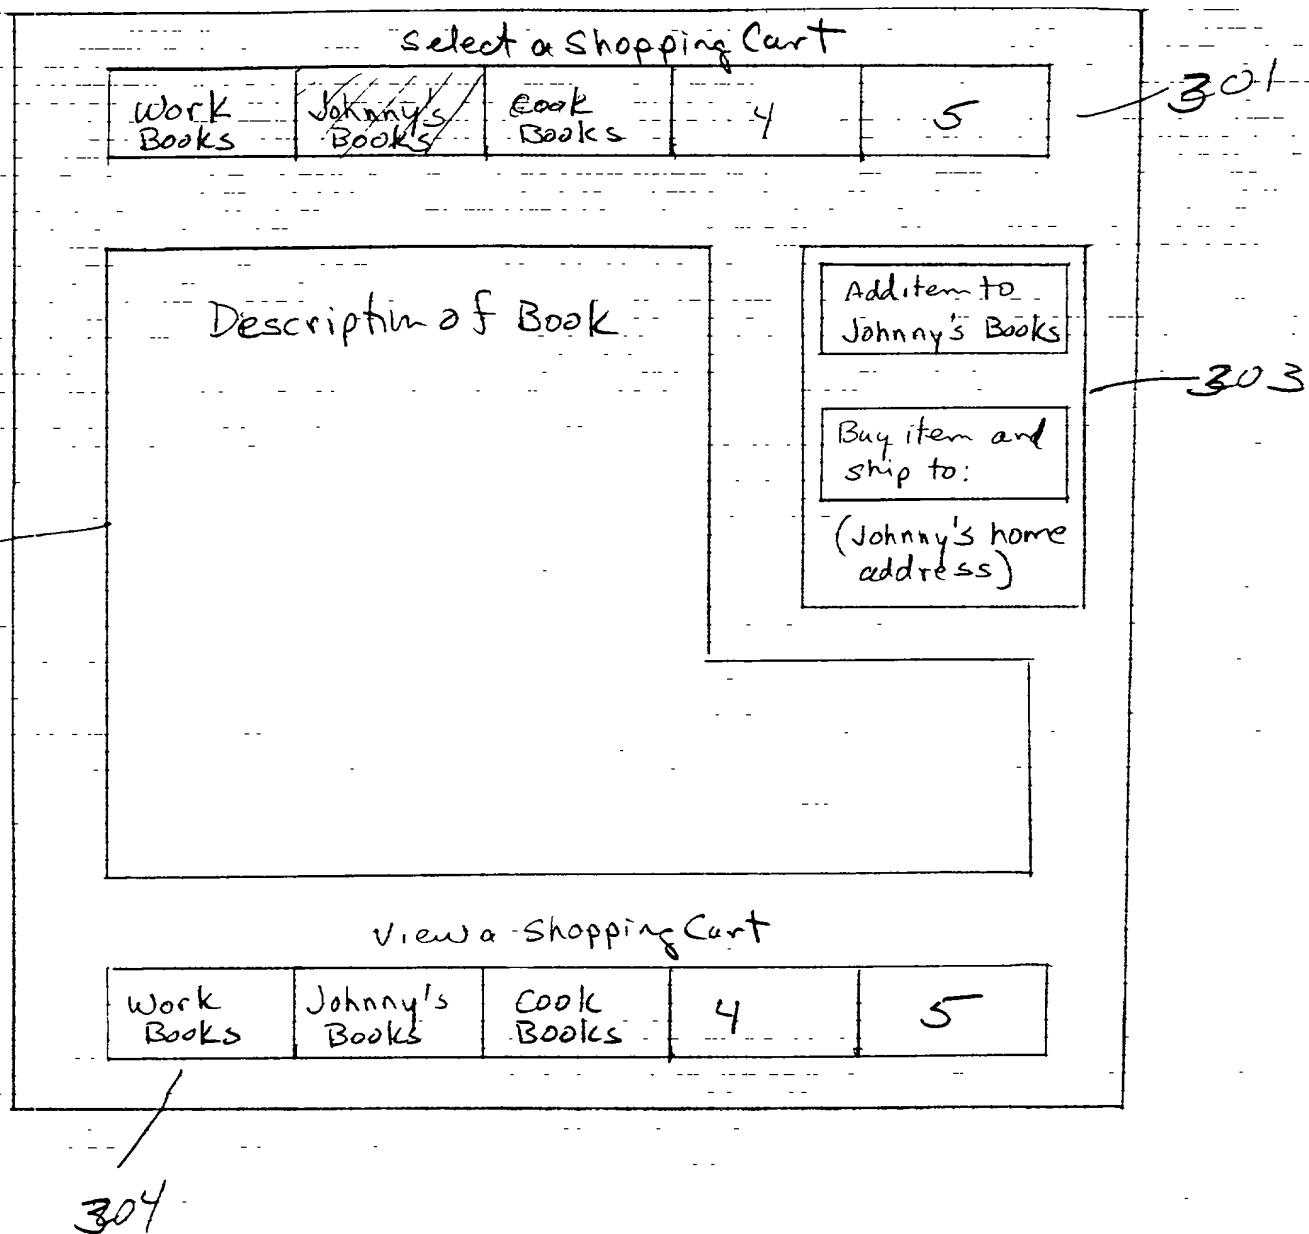 Select a Shopping Cart
301
Work Books
Johnny's Books
Cook Books
4
5
Description of Book
Add item to
Johnny's Books
303
Buy item and
ship to:
(Johnny's home
address)
View a Shopping Cart
Work Books
Johnny's Books
Cook Books
4
5
304